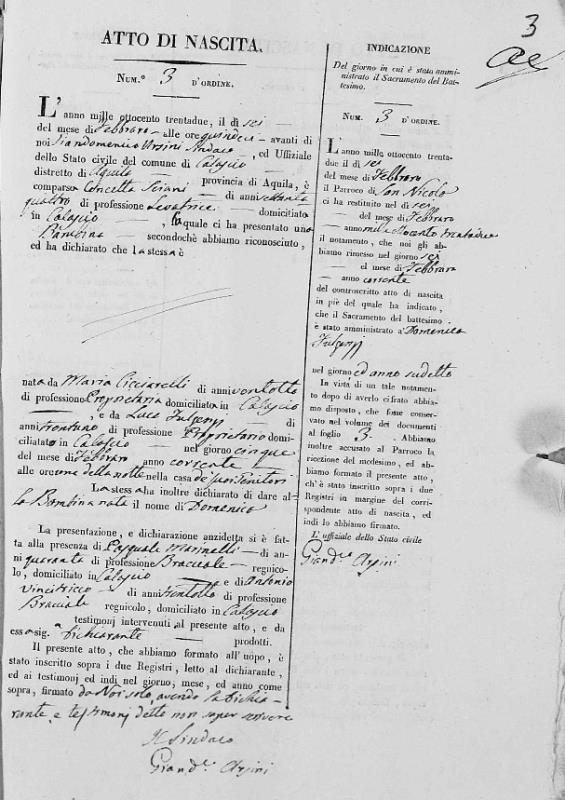 3
ATTO DI NASCITA.
NUM.º 3 D'ORDINE.
L'anno mille ottocento trentadue, il dì sei
del mese di Febbraro alle ore quindici avanti di
noi Giandomenico Sindaco, ed Uffiziale
dello Stato civile del comune di Calascio
distretto di Aquila provincia di Aquila, è
comparsa Concetta di anni settanta
quattro di professione Levatrice domiciliato
in Calascio, la quale ci ha presentato una
Bambina secondochè abbiamo riconosciuto,
ed ha dichiarato che la stessa è
nata da Maria Cicciarelli di anni ventotto
di professione Proprietaria domiciliato in Calascio
, e da Luca Fulgenzj di
anni trentuno di professione Proprietario domi-
ciliato in Calascio nel giorno cinque
del mese di Febbraro anno corrente
alle ore una della notte nella casa de' suoi Genitori
La stessa ha inoltre dichiarato di dare al
la Bambina nata il nome di Domenica
La presentazione, e dichiarazione anzidetta si è fat-
ta alla presenza di Pasquale Marinelli di an-
ni quaranta di professione Bracciale regnico-
lo, domiciliato in Calascio e di Antonio
di anni trentotto di professione
Bracciale regnicolo, domiciliato in Calascio
testimonj intervenuti al presente atto, e da
essa sig.ª Dichiarante prodotti.
Il presente atto, che abbiamo formato all'uopo, è
stato inscritto sopra i due Registri, letto al dichiarante,
ed ai testimonj ed indi nel giorno, mese, ed anno come
sopra, firmato da Noi solo avendo la Dichia-
rante, e testimonj detto non saper scrivere
Il Sindaco
INDICAZIONE
Del giorno in cui è stato ammi-
nistrato il Sacramento del Bat-
tesimo.
NUM. 3 D'ORDINE.
L'anno mille ottocento trenta-
due il dì sei
del mese di Febbraro
il Parroco di San Nicola
ci ha restituito nel dì sei
del mese di Febbraro
anno mille ottocento trentadue
il notamento, che noi gli ab-
biamo rimesso nel giorno sei
el mese di Febbraro
anno corrente
del controscritto atto di nascita
in piè del quale ha indicato,
che il Sacramento del battesimo
è stato amministrato a Domenica
Fulgenzj
nel giorno ed anno sudetto
In vista di un tale notamen-
to dopo di averlo cifrato abbia-
mo disposto, che fosse conser-
vato nel volume dei documenti
al foglio 3. Abbiamo
inoltre accusato al Parroco la
ricezione del medesimo, ed ab-
biamo formato il presente atto,
ch'è stato inscritto sopra i due
Registri in margine del corri-
spondente atto di nascita, ed
indi lo abbiamo firmato.
L'uffiziale dello Stato civile